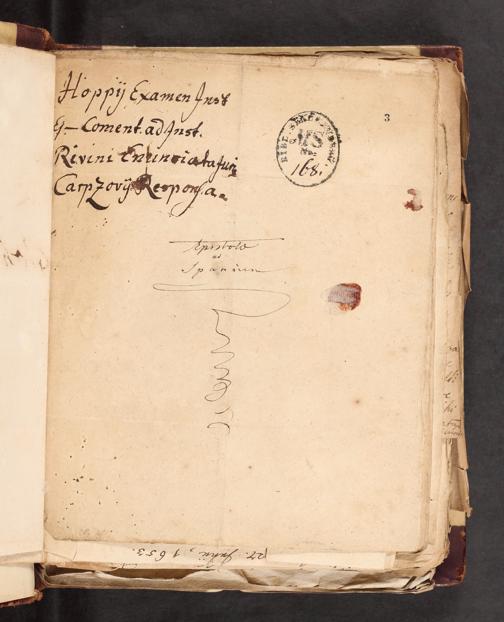 Hoppij Examen Inst
G– Coment ad Inst.
Rivini Enunciata Juri
Carpzovij Responsa.
3
MS
168.
Epistolæ
ad
Spanium
27. Julii, 1653.